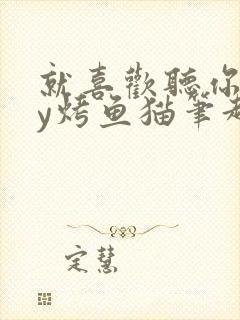 就喜歡聽你
y烤鱼猫筆趣
定慧